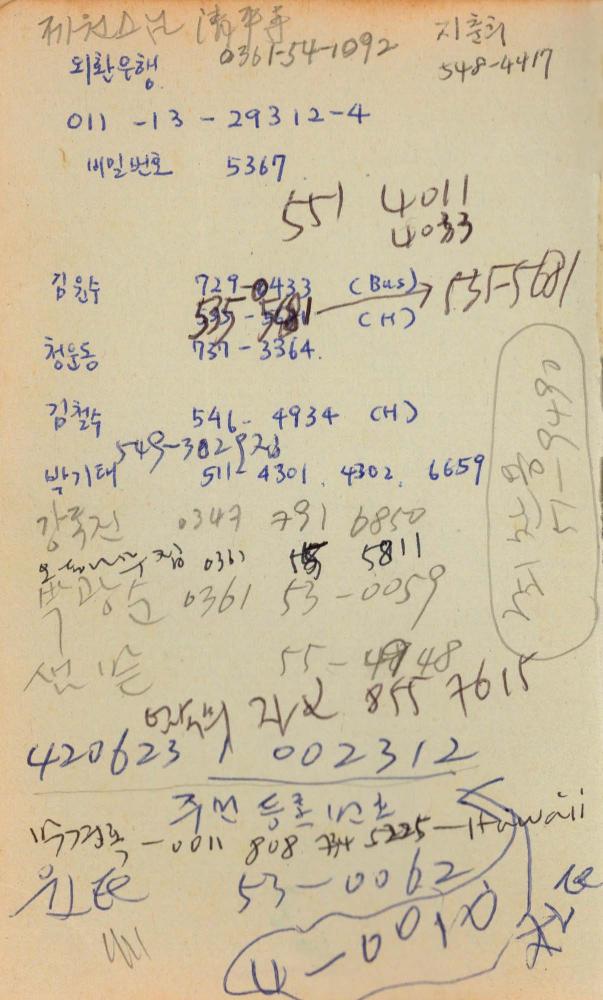 제원스님 淸平寺 0361-54-1092
지훈희
548-4417
외환은행
011-13-29312-4
비밀번호 5367
551 4011
4033
김윤수 729-0433 (Bus)
535-5681 (H) → 535-5681
청운동 737-3364.
김철수 546-4934 (H)
549-3029 집
박기태 511-4301, 4302, 6659
강죽전 0347 791 6850
집 0361 5811
박광순 0361 53-0059
샘밭 55-4948
855 7615
420623 1 002312
주민등록번호
-0011 808 5225-Hawaii
53-0062
4-0010
51-9490